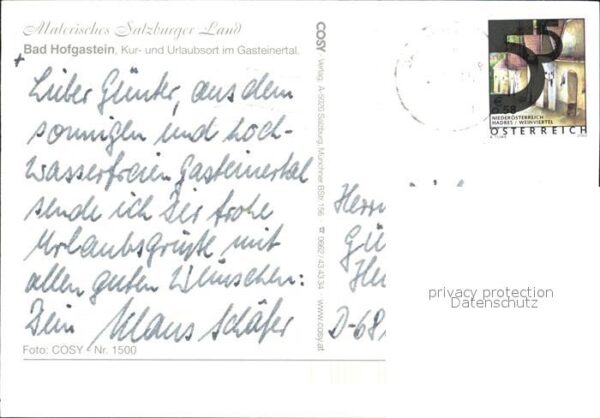 Malerisches Salzburger Land
Bad Hofgastein, Kur- und Urlaubsort im Gasteinertal.
Lieber Günter, aus dem
sonnigen und hoch-
wasserfreien Gasteinertal
sende ich Dir frohe
Urlaubsgrüße mit
allen guten Wünschen:
Dein Klaus Schäfer
Foto: COSY - Nr. 1500
COSY Verlag, A-5020 Salzburg, Münchner BStr. 156, ☎ 0662/43 43 34 www.cosy.at
55
€ 0,58
NIEDERÖSTERREICH
HADRES / WEINVIERTEL
ÖSTERREICH
Herrn
Gü
D-68
privacy protection
Datenschutz